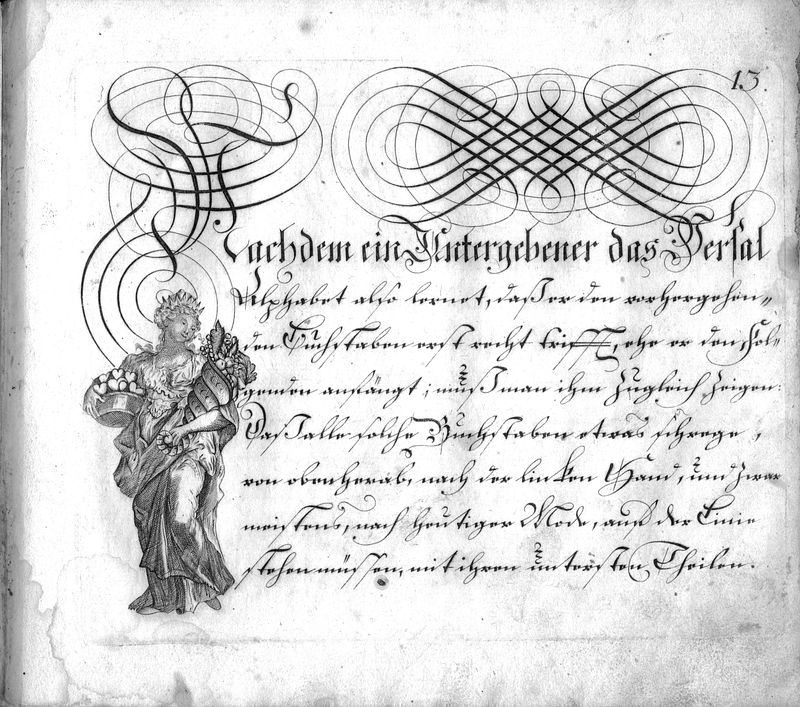 13.
Nachdem ein Untergebener das Versal
Alphabet also lernet, daß er den vorhergehen„
den Buchstaben erst recht trifft, ehe er den fol„
genden anfängt; muß man ihm zugleich zeigen:
Daß alle solche Buchstaben etwas schrege,
von oben herab, nach der lincken Hand, und zwar
meistens, nach heutiger Mode, auf der Linie
stehen müssen, mit ihren untersten Theilen.